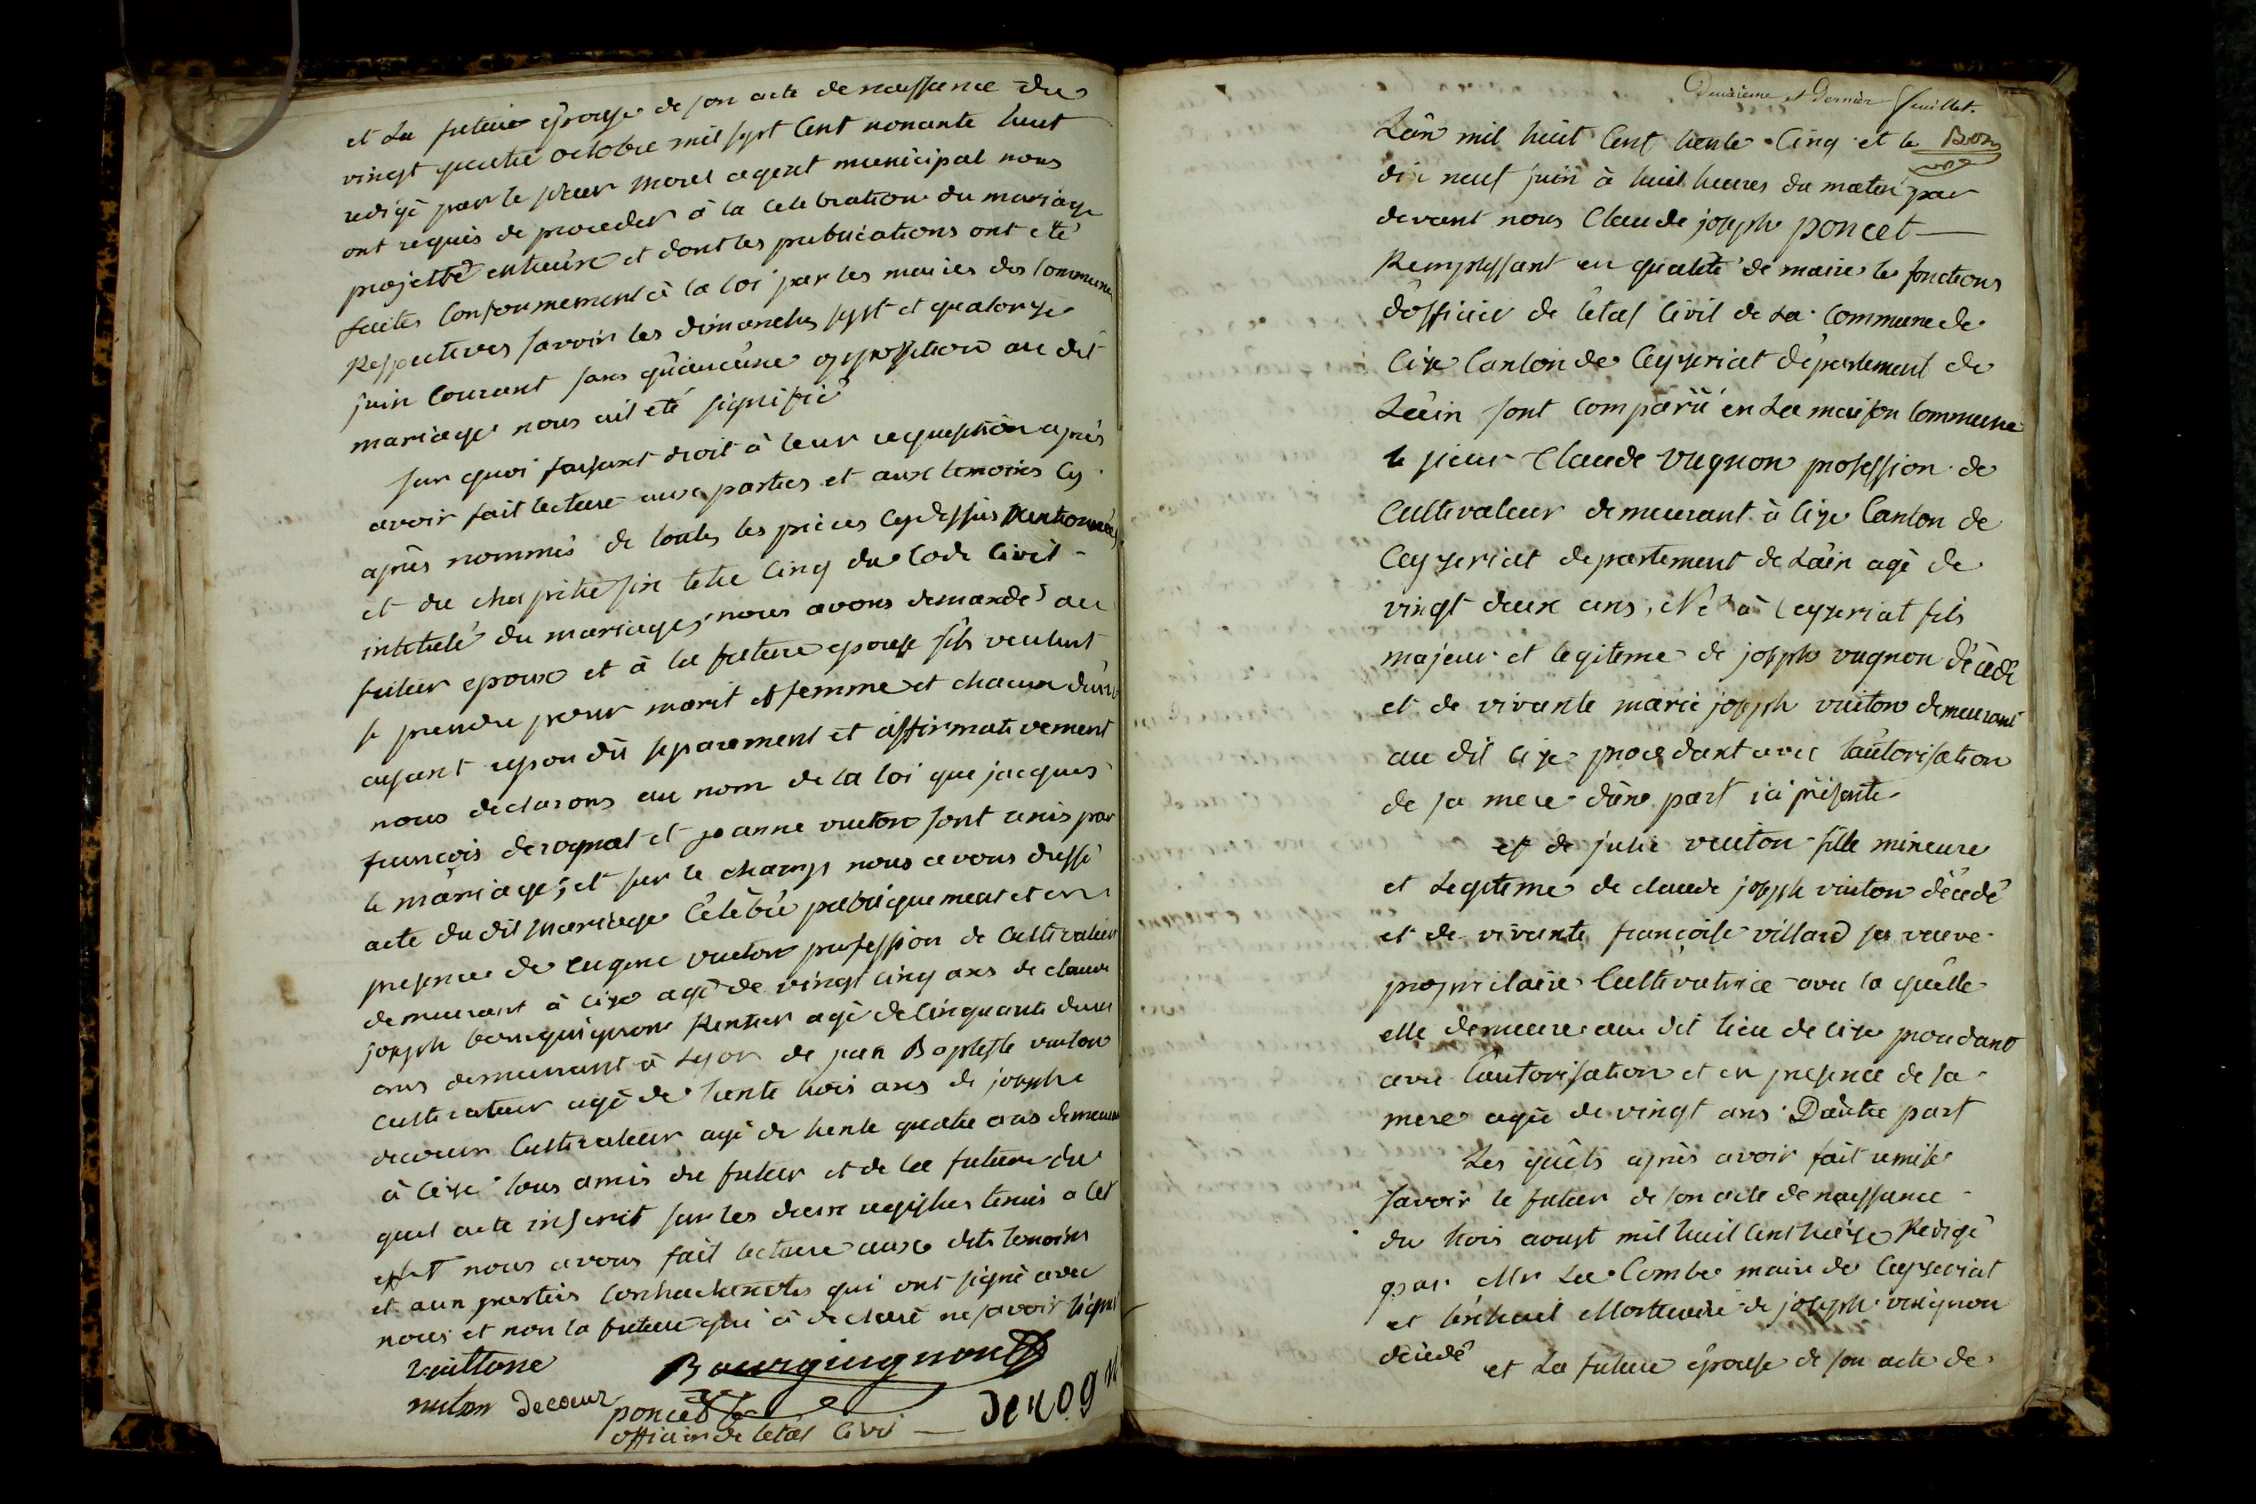 et La future épouse de son acte de naissance du
vingt quatre octobre mil sept Cent nonante huit
redigé par le sieur morel agent municipal nous
ont requis de proceder à la celebration du mariage
projetté entieùx et dont les publications ont eté
faites Conformement à la loi par les mairies des Commune
Respectives savoir les dimanches sept et quatorze
juin Courant sans qu'aucune opposition au dit
mariage nous ait eté signifié
sur quoi faisant droit à leur requisition après
avoir fait lecture aux parties et aux temoins Cy
après nommés de toutes les pièces Cy dessus Mentionnées
et du chapitre six titre Cinq du Code Civil
intitulé du mariage, nous avons demandé au
futur epoux et à la future epouse s'ils veulent
se prendre pour marit et femme et chacun d'eux
ayant repondû separement et affirmativement
nous declarons au nom de la loi que jacques
françois derognat et jeanne vuiton sont unis par
le mariage; et sur le champs nous avons dressé
acte du dit Mariage Célébré publiquement et en
presence de eugene vuiton profession de Cultivateur
demeurant à Cize agé de vingt cinq ans de claude
joseph bourguignon Rentier agé de Cinquante deux
ans demeurant à de jean Baptiste vuiton
Cultivateur agé de trente trois ans de joseph
decoeur Cultivateur agé de trente quatre ans demeurant
à Cize tous amis du futur et de la future du
quel acte inscrit sur les deux registres tenus a Cet
effet nous avons fait lecture aux dits temoins
et aux parties Contractantes qui ont signé avec
nous et non la future qui à declaré ne savoir signé
Bourguignon
vuiton Decoeur poncet
officier de l'etat Civil — derogn
Deuxieme et Dernier feuillet.
L'an mil huit Cent trente Cinq et le Bon
dix neuf juin à huit heures du matin par
devant nous Claude joseph poncet —
Remplissant en qualité de maire les fonctions
d'officier de l'état Civil de La Commune de
Cize Canton de Ceyzeriat département de
L'ain sont comparü en La maison Commune
le sieur Claude vugnon profession de
Cultivateur demeurant à Cize Canton de
Ceyzeriat departement de L'ain agé de
vingt deux ans, Né à Ceyzeriat fils
majeur et legitime de joseph vugnon décédé
et de vivante marie joseph vuiton demeurant
au dit Cize procedant avec l'autorisation
de sa mere d'une part ici présente
et de julie vuiton fille mineure
et Legitime de claude joseph vuiton décédé
et de vivante françoise villard sa veuve
proprietaire Cultivatrice avec la quelle
elle demeure au dit lieu de Cize procedant
avec l'autorisation et en presence de sa
mere agée de vingt ans D'autre part
Les quels après avoir fait remise
savoir le futur de son acte de naissance
du trois aoust mil huit Cent treize Redigé
par Mr La Combe maire de Ceyzeriat
et l'extrait Mortuaire de joseph vugnon
décédé et La future épouse de son acte de